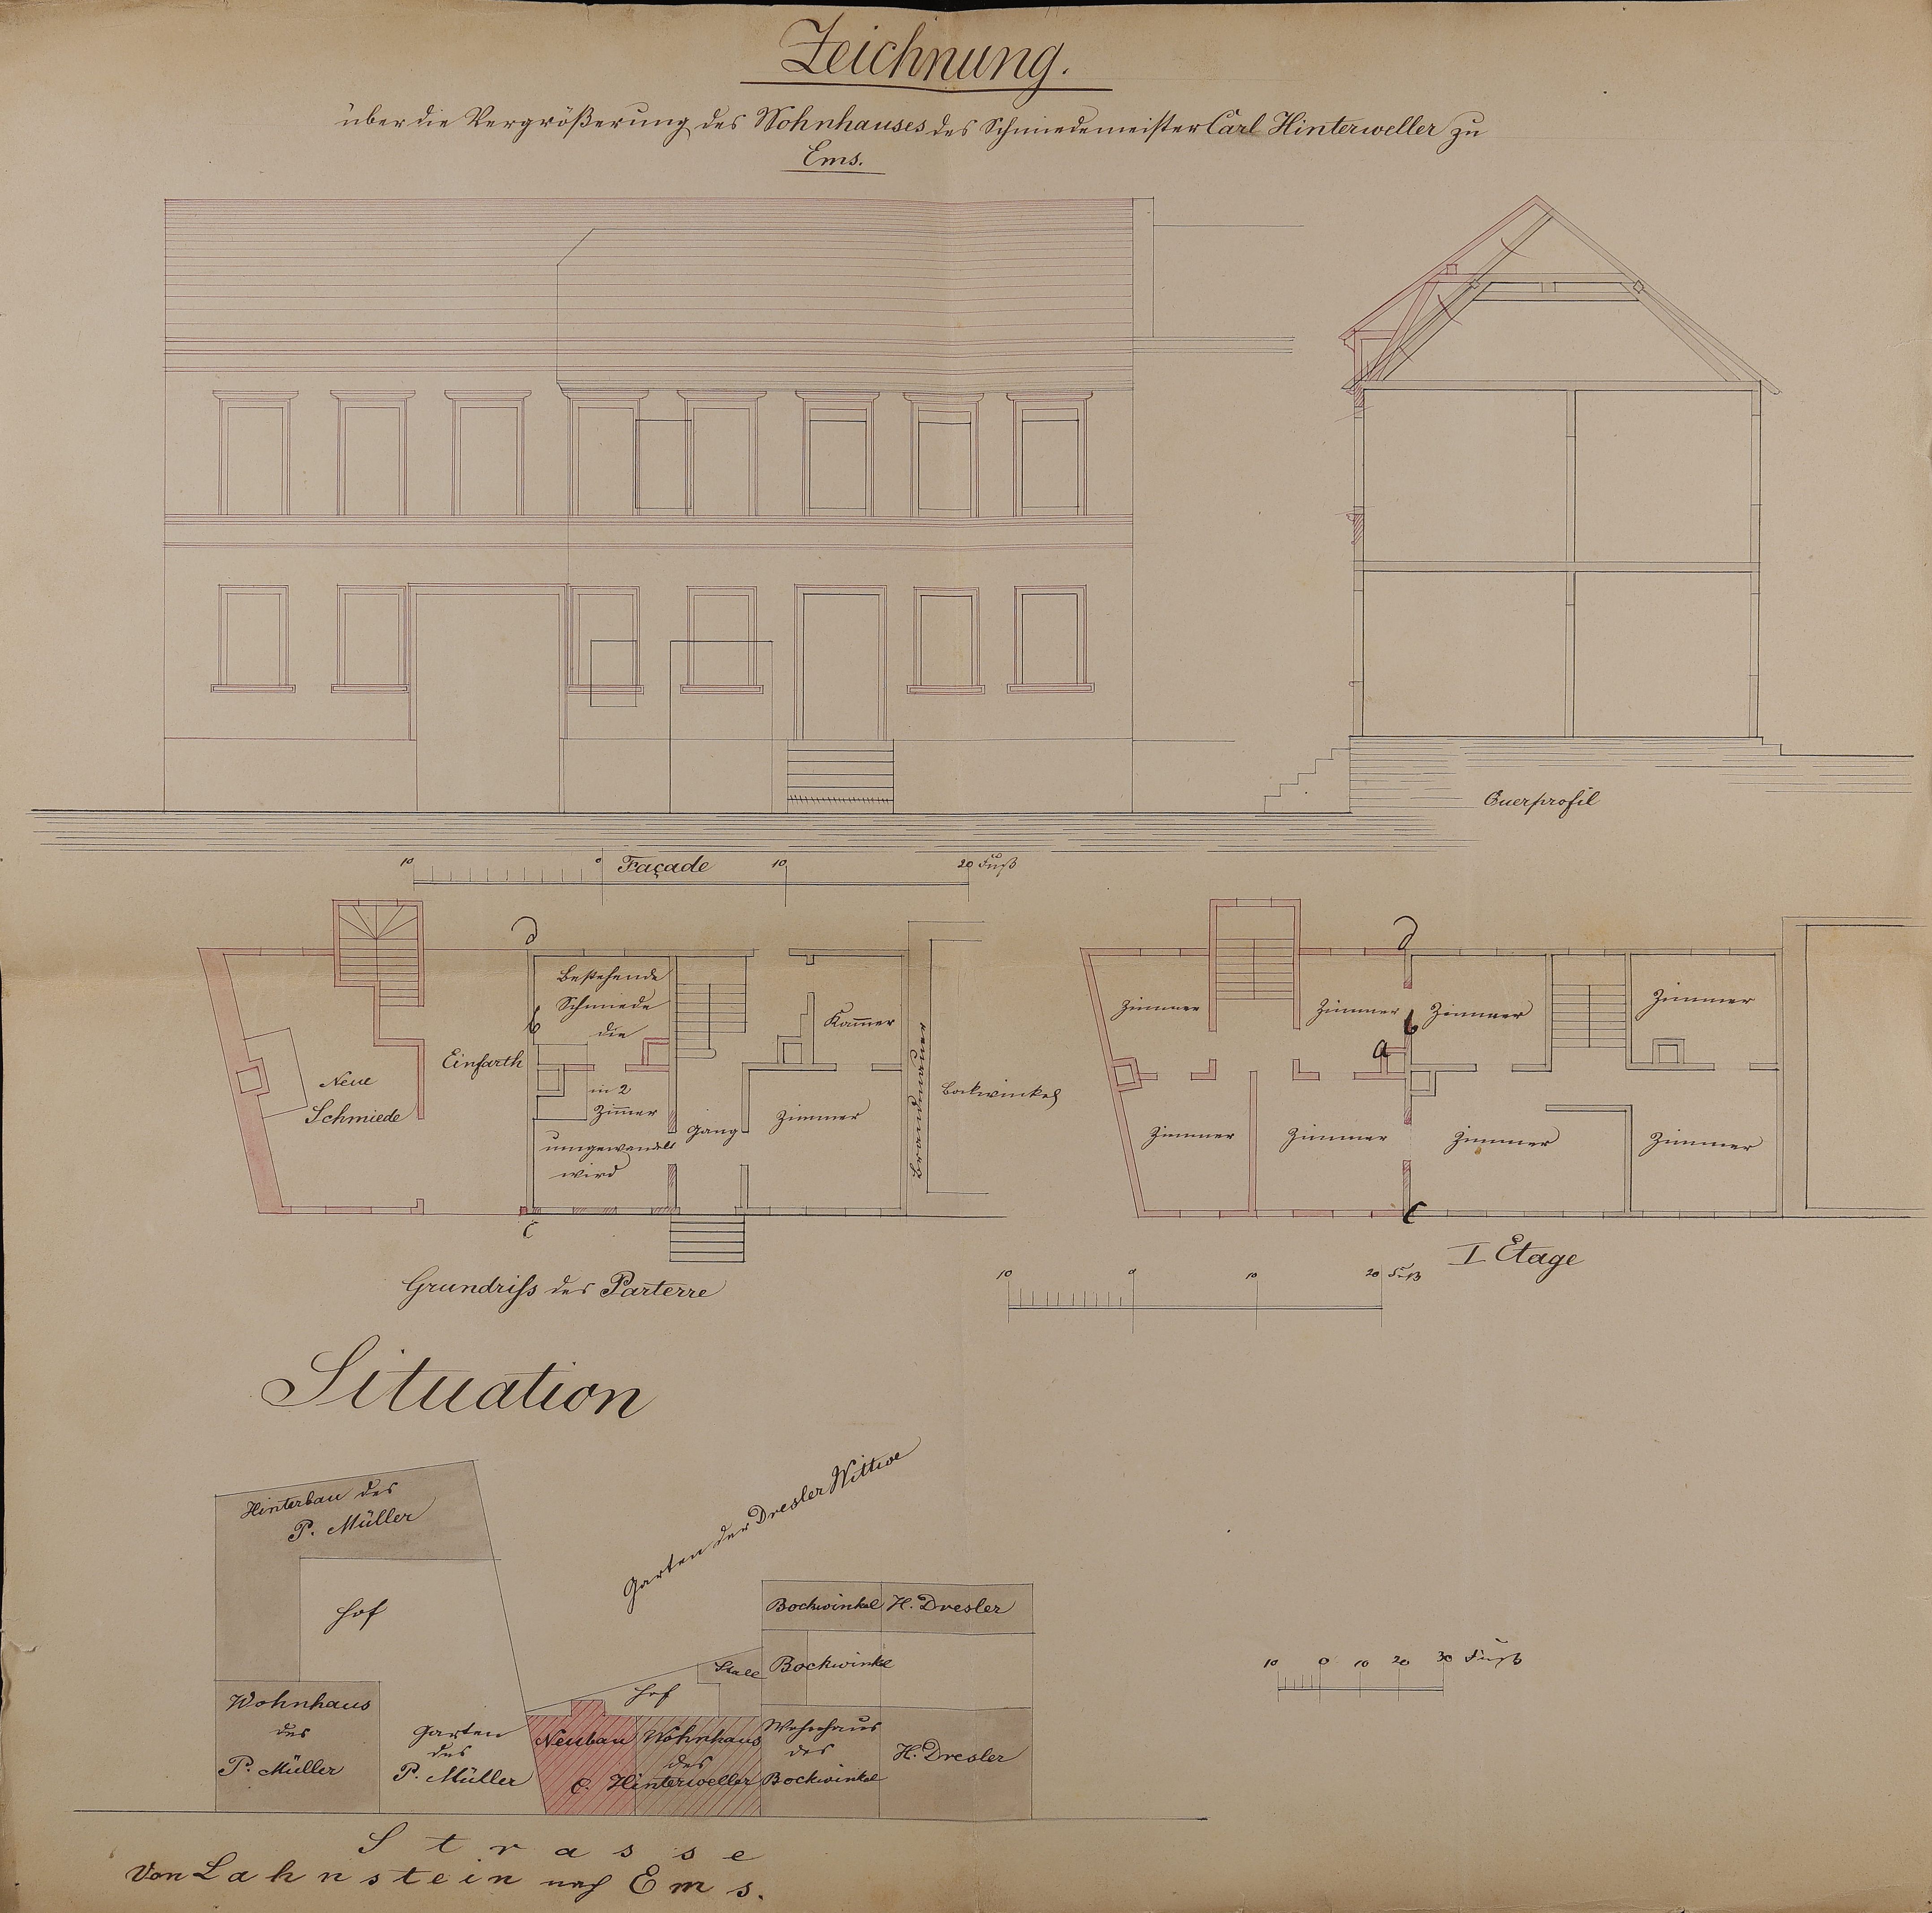 Zeichnung.
über die Vergrößerung des Wohnhauses des Schmiedemeister Carl Hinterweller zu
Ems.
Querprofil
10 0 Façade 10 20 Fuß
Bestehende
Schmiede
die
in 2
Zimmer
umgewandelt
wird
Kammer
Einfarth
Neue
Schmiede
Gang
Zimmer
Brandmauer
Bockwinkel
b
c
Grundriss des Parterre
Zimmer
Zimmer
Zimmer
Zimmer
b
a
Zimmer
Zimmer
Zimmer
Zimmer
c
I Etage
10 0 10 20 Fuß
Situation
Hinterbau des
P. Müller
Hof
Garten der Dresler Wittwe
Bockwinkel
H. Dresler
Stall
Bockwinkel
Hof
Wohnhaus
des
P. Müller
Garten
des
P. Müller
Neubau
Wohnhaus
des
C. Hinterweller
Wohnhaus
des
Bockwinkel
H. Dresler
10 0 10 20 30 Fuß
Strasse
Von Lahnstein nach Ems.